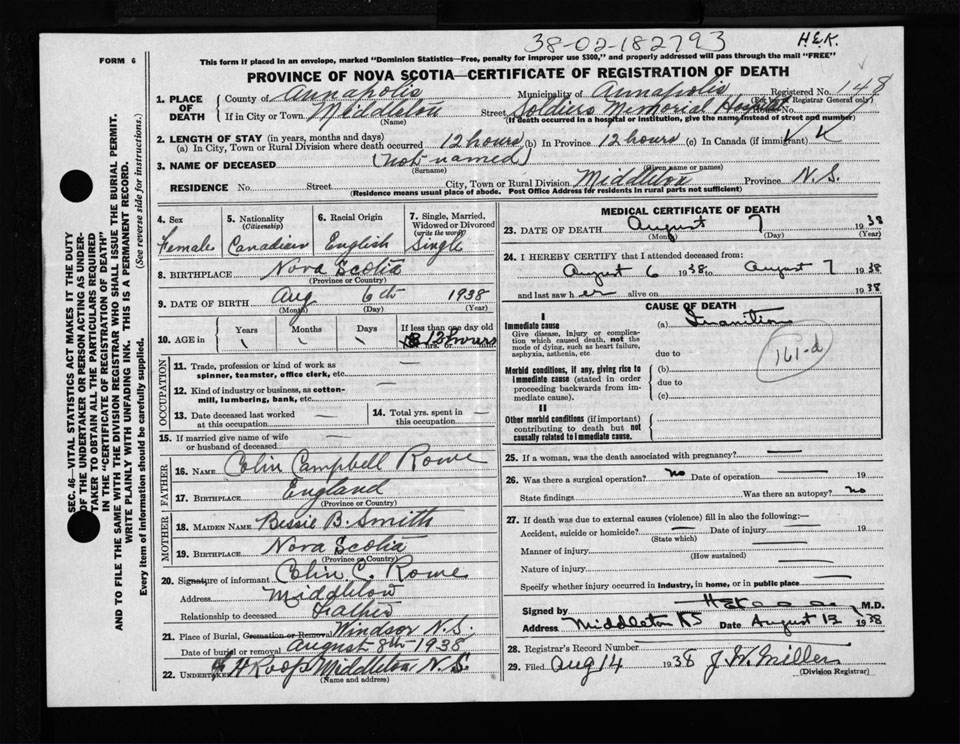 38-02-182793
H.E.K.
FORM 6
This form if placed in an envelope, marked "Dominion Statistics—Free, penalty for improper use $300," and properly addressed will pass through the mail "FREE"
PROVINCE OF NOVA SCOTIA—CERTIFICATE OF REGISTRATION OF DEATH
1. PLACE OF DEATH
County of Annapolis Municipality of Annapolis Registered No. 148
(For use of Registrar General only)
If in City or Town Middleton Street Soldiers Memorial Hospital No.
(Name) (If death occurred in a hospital or institution, give the name instead of street and number)
2. LENGTH OF STAY (in years, months and days)
(a) In City, Town or Rural Division where death occurred 12 hours (b) In Province 12 hours (c) In Canada (if immigrant)
3. NAME OF DECEASED (not named)
(Surname) (Given name or names)
RESIDENCE No. Street City, Town or Rural Division Middleton Province N.S.
(Residence means usual place of abode. Post Office Address for residents in rural parts not sufficient)
SEC. 46—VITAL STATISTICS ACT MAKES IT THE DUTY
OF THE UNDERTAKER OR PERSON ACTING AS UNDER-
TAKER TO OBTAIN ALL THE PARTICULARS REQUIRED
IN THE "CERTIFICATE OF REGISTRATION OF DEATH"
AND TO FILE THE SAME WITH THE DIVISION REGISTRAR WHO SHALL ISSUE THE BURIAL PERMIT.
WRITE PLAINLY WITH UNFADING INK. THIS IS A PERMANENT RECORD.
Every item of Information should be carefully supplied. (See reverse side for instructions.)
4. Sex
Female
5. Nationality
(Citizenship)
Canadian
6. Racial Origin
English
7. Single, Married,
Widowed or Divorced
(write the word)
Single
8. BIRTHPLACE Nova Scotia
(Province or Country)
9. DATE OF BIRTH Aug 6th 1938
(Month) (Day) (Year)
10. AGE in
Years Months Days If less than one day old
12 hours
hrs. or min.
OCCUPATION
11. Trade, profession or kind of work as
spinner, teamster, office clerk, etc.
12. Kind of industry or business, as cotton-
mill, lumbering, bank, etc.
13. Date deceased last worked
at this occupation
14. Total yrs. spent in
this occupation
15. If married give name of wife
or husband of deceased
FATHER
16. NAME Colin Campbell Rowe
17. BIRTHPLACE England
(Province or Country)
MOTHER
18. MAIDEN NAME Bessie B. Smith
19. BIRTHPLACE Nova Scotia
(Province or Country)
20. Signature of informant Colin C. Rowe
Address Middleton
Relationship to deceased Father
21. Place of Burial, Cremation or Removal Windsor N.S.
Date of burial or removal August 8th 1938
22. UNDERTAKER Roop Middleton N.S.
(Name and address)
MEDICAL CERTIFICATE OF DEATH
23. DATE OF DEATH August 7 1938
(Month) (Day) (Year)
24. I HEREBY CERTIFY that I attended deceased from:
August 6 1938 to August 7 1938
and last saw her alive on 1938
CAUSE OF DEATH
I
Immediate cause
Give disease, injury or complica-
tion which caused death, not the
mode of dying, such as heart failure,
asphyxia, asthenia, etc
(a) Inanition
161-d
due to
Morbid conditions, if any, giving rise to
immediate cause (stated in order
proceeding backwards from im-
mediate cause).
(b)
due to
(c)
II
Other morbid conditions (if important)
contributing to death but not
causally related to immediate cause.
25. If a woman, was the death associated with pregnancy?
26. Was there a surgical operation? no Date of operation 19
State findings Was there an autopsy? no
27. If death was due to external causes (violence) fill in also the following:—
Accident, suicide or homicide? Date of injury 19
(State which)
Manner of injury
(How sustained)
Nature of injury
Specify whether injury occurred in industry, in home, or in public place
Signed by M.D.
Address Middleton NS Date August 13 1938
28. Registrar's Record Number
29. Filed Aug 14 1938 J. W. Miller
(Division Registrar)